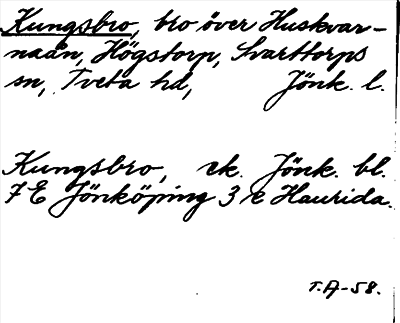 Kungsbro, bro över Huskvar-
naån, Högstorp, Svarttorps
sn, Tveta hd, Jönk. l.
Kungsbro, ek. Jönk. bl.
7 E Jönköping 3 e Haurida.
T.A-58.